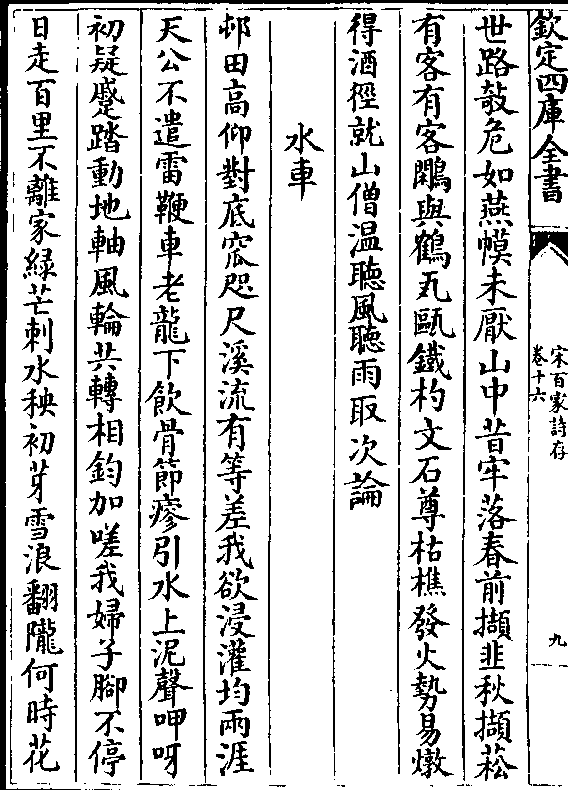 欽定四庫全書
宋百家詩存
卷十六
九
世路敧危如燕幙未厭山中昔牢落春前擷韭秋擷菘
有客有客鷳與鶴瓦甌鐵杓文石尊枯樵發火勢易燉
得酒徑就山僧温聽風聽雨取次論
水車
邨田高仰對底窊咫尺溪流有等差我欲浸灌均兩涯
天公不遣雷鞭車老龍下飲骨節瘮引水上泥聲呷呀
初疑蹙踏動地軸風輪共轉相鈎加嗟我婦子腳不停
日走百里不離家緑芒刺水秧初芽雪浪翻隴何時花